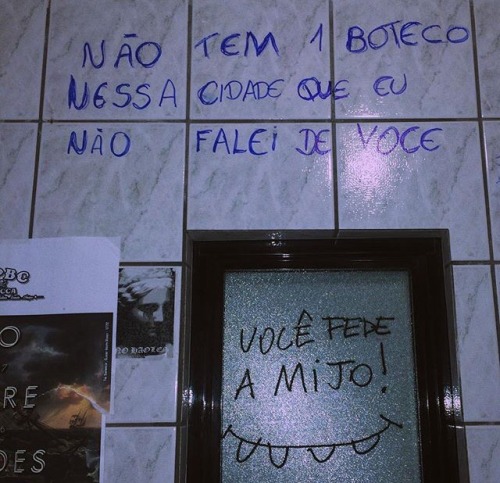 NÃO TEM 1 BOTECO
NESSA CIDADE QUE EU
NÃO FALEI DE VOCE
VOCÊ FEDE
A MIJO!
O
RE
DES